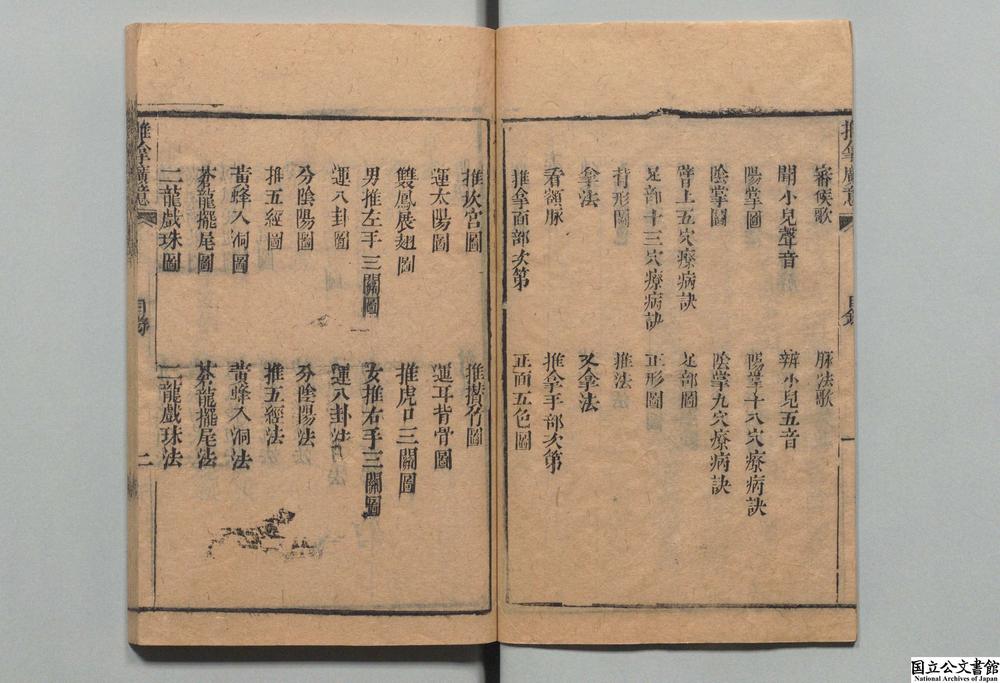 推拿廣意
目錄
一
審候歌
脉法歌
聞小兒聲音
辨小兒五音
陽掌圖
陽掌十八穴療病訣
陰掌圖
陰掌九穴療病訣
臂上五穴療病訣
足部圖
足部十三穴療病訣
正形圖
背形圖
推法
拿法
又拿法
看額脉
推拿手部次第
推拿面部次第
正面五色圖
推坎宮圖
推攅竹圖
運太陽圖
運耳背骨圖
雙鳳展翅圖
推虎口三關圖
男推左手三關圖
女推右手三關圖
運八卦圖
運八卦法
分陰陽圖
分陰陽法
推五經圖
推五經法
黃蜂入洞圖
黃蜂入洞法
蒼龍擺尾圖
蒼龍擺尾法
二龍戲珠圖
二龍戲珠法
推拿廣意
目錄
二
国立公文書館
National Archives of Japan